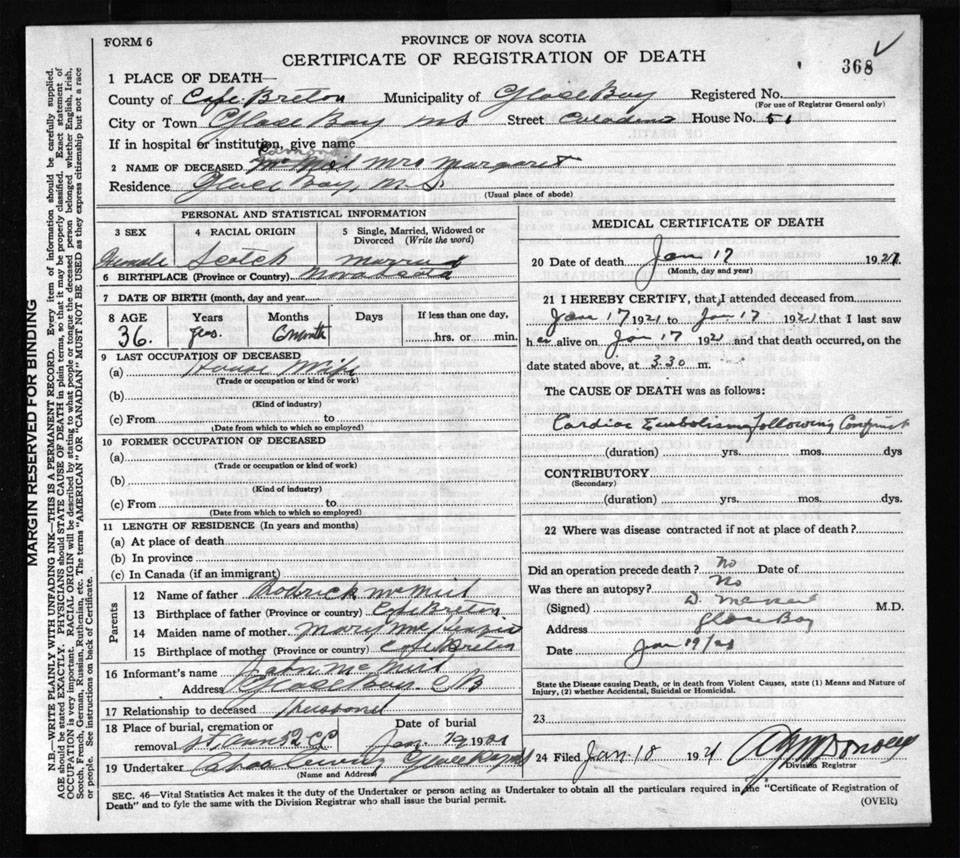 FORM 6
PROVINCE OF NOVA SCOTIA
CERTIFICATE OF REGISTRATION OF DEATH
368
1 PLACE OF DEATH—
County of Cape Breton Municipality of Glace Bay Registered No.
(For use of Registrar General only)
City or Town Glace Bay NS Street House No. 51
If in hospital or institution, give name
2 NAME OF DECEASED McNeil Mrs Margaret
Residence Glace Bay, N.S.
(Usual place of abode)
PERSONAL AND STATISTICAL INFORMATION
3 SEX
4 RACIAL ORIGIN
5 Single, Married, Widowed or Divorced (Write the word)
Female Scotch Married
6 BIRTHPLACE (Province or Country) Nova Scotia
7 DATE OF BIRTH (month, day and year)
8 AGE Years Months Days If less than one day,
36. yrs. 6 month hrs. or min.
9 LAST OCCUPATION OF DECEASED
(a) House Wife
(Trade or occupation or kind of work)
(b)
(Kind of industry)
(c) From to
(Date from which to which so employed)
10 FORMER OCCUPATION OF DECEASED
(a)
(Trade or occupation or kind of work)
(b)
(Kind of industry)
(c) From to
(Date from which to which so employed)
11 LENGTH OF RESIDENCE (In years and months)
(a) At place of death
(b) In province
(c) In Canada (if an immigrant)
Parents
12 Name of father Rodrick McNeil
13 Birthplace of father (Province or country) Cape Breton
14 Maiden name of mother Mary McKenzie
15 Birthplace of mother (Province or country) Cape Breton
16 Informant's name John McNeil
Address Glace Bay CB
17 Relationship to deceased Husband
18 Place of burial, cremation or removal St Anns
Date of burial Jan 19 1921
19 Undertaker
(Name and Address)
MEDICAL CERTIFICATE OF DEATH
20 Date of death Jan 17 1921
(Month, day and year)
21 I HEREBY CERTIFY, that I attended deceased from
Jan 17 1921 to Jan 17 1921 that I last saw
her alive on Jan 17 1921 and that death occurred, on the
date stated above, at 3.30 m.
The CAUSE OF DEATH was as follows:
Cardiac Embolism following
(duration) yrs. mos. dys
CONTRIBUTORY
(Secondary)
(duration) yrs. mos. dys.
22 Where was disease contracted if not at place of death?
Did an operation precede death? No Date of
Was there an autopsy? No
(Signed) D. McNeil M.D.
Address Glace Bay
Date Jan 19/21
State the Disease causing Death, or in death from Violent Causes, state (1) Means and Nature of
Injury, (2) whether Accidental, Suicidal or Homicidal.
23
24 Filed Jan 18 1921
Division Registrar
SEC. 46—Vital Statistics Act makes it the duty of the Undertaker or person acting as Undertaker to obtain all the particulars required in the "Certificate of Registration of
Death" and to fyle the same with the Division Registrar who shall issue the burial permit.
(OVER)
MARGIN RESERVED FOR BINDING
N.B.—WRITE PLAINLY WITH UNFADING INK—THIS IS A PERMANENT RECORD. Every item of information should be carefully supplied.
AGE should be stated EXACTLY. PHYSICIANS should STATE CAUSE OF DEATH in plain terms, so that it may be properly classified. Exact statement of
OCCUPATION is very important. RACIAL ORIGIN will be described by stating to what people or tongue the deceased person belonged whether English, Irish,
Scotch, French, German, Russian, Ruthenian, etc. The terms "AMERICAN" or "CANADIAN" MUST NOT BE USED as they express citizenship but not a race
or people. See instructions on back of Certificate.